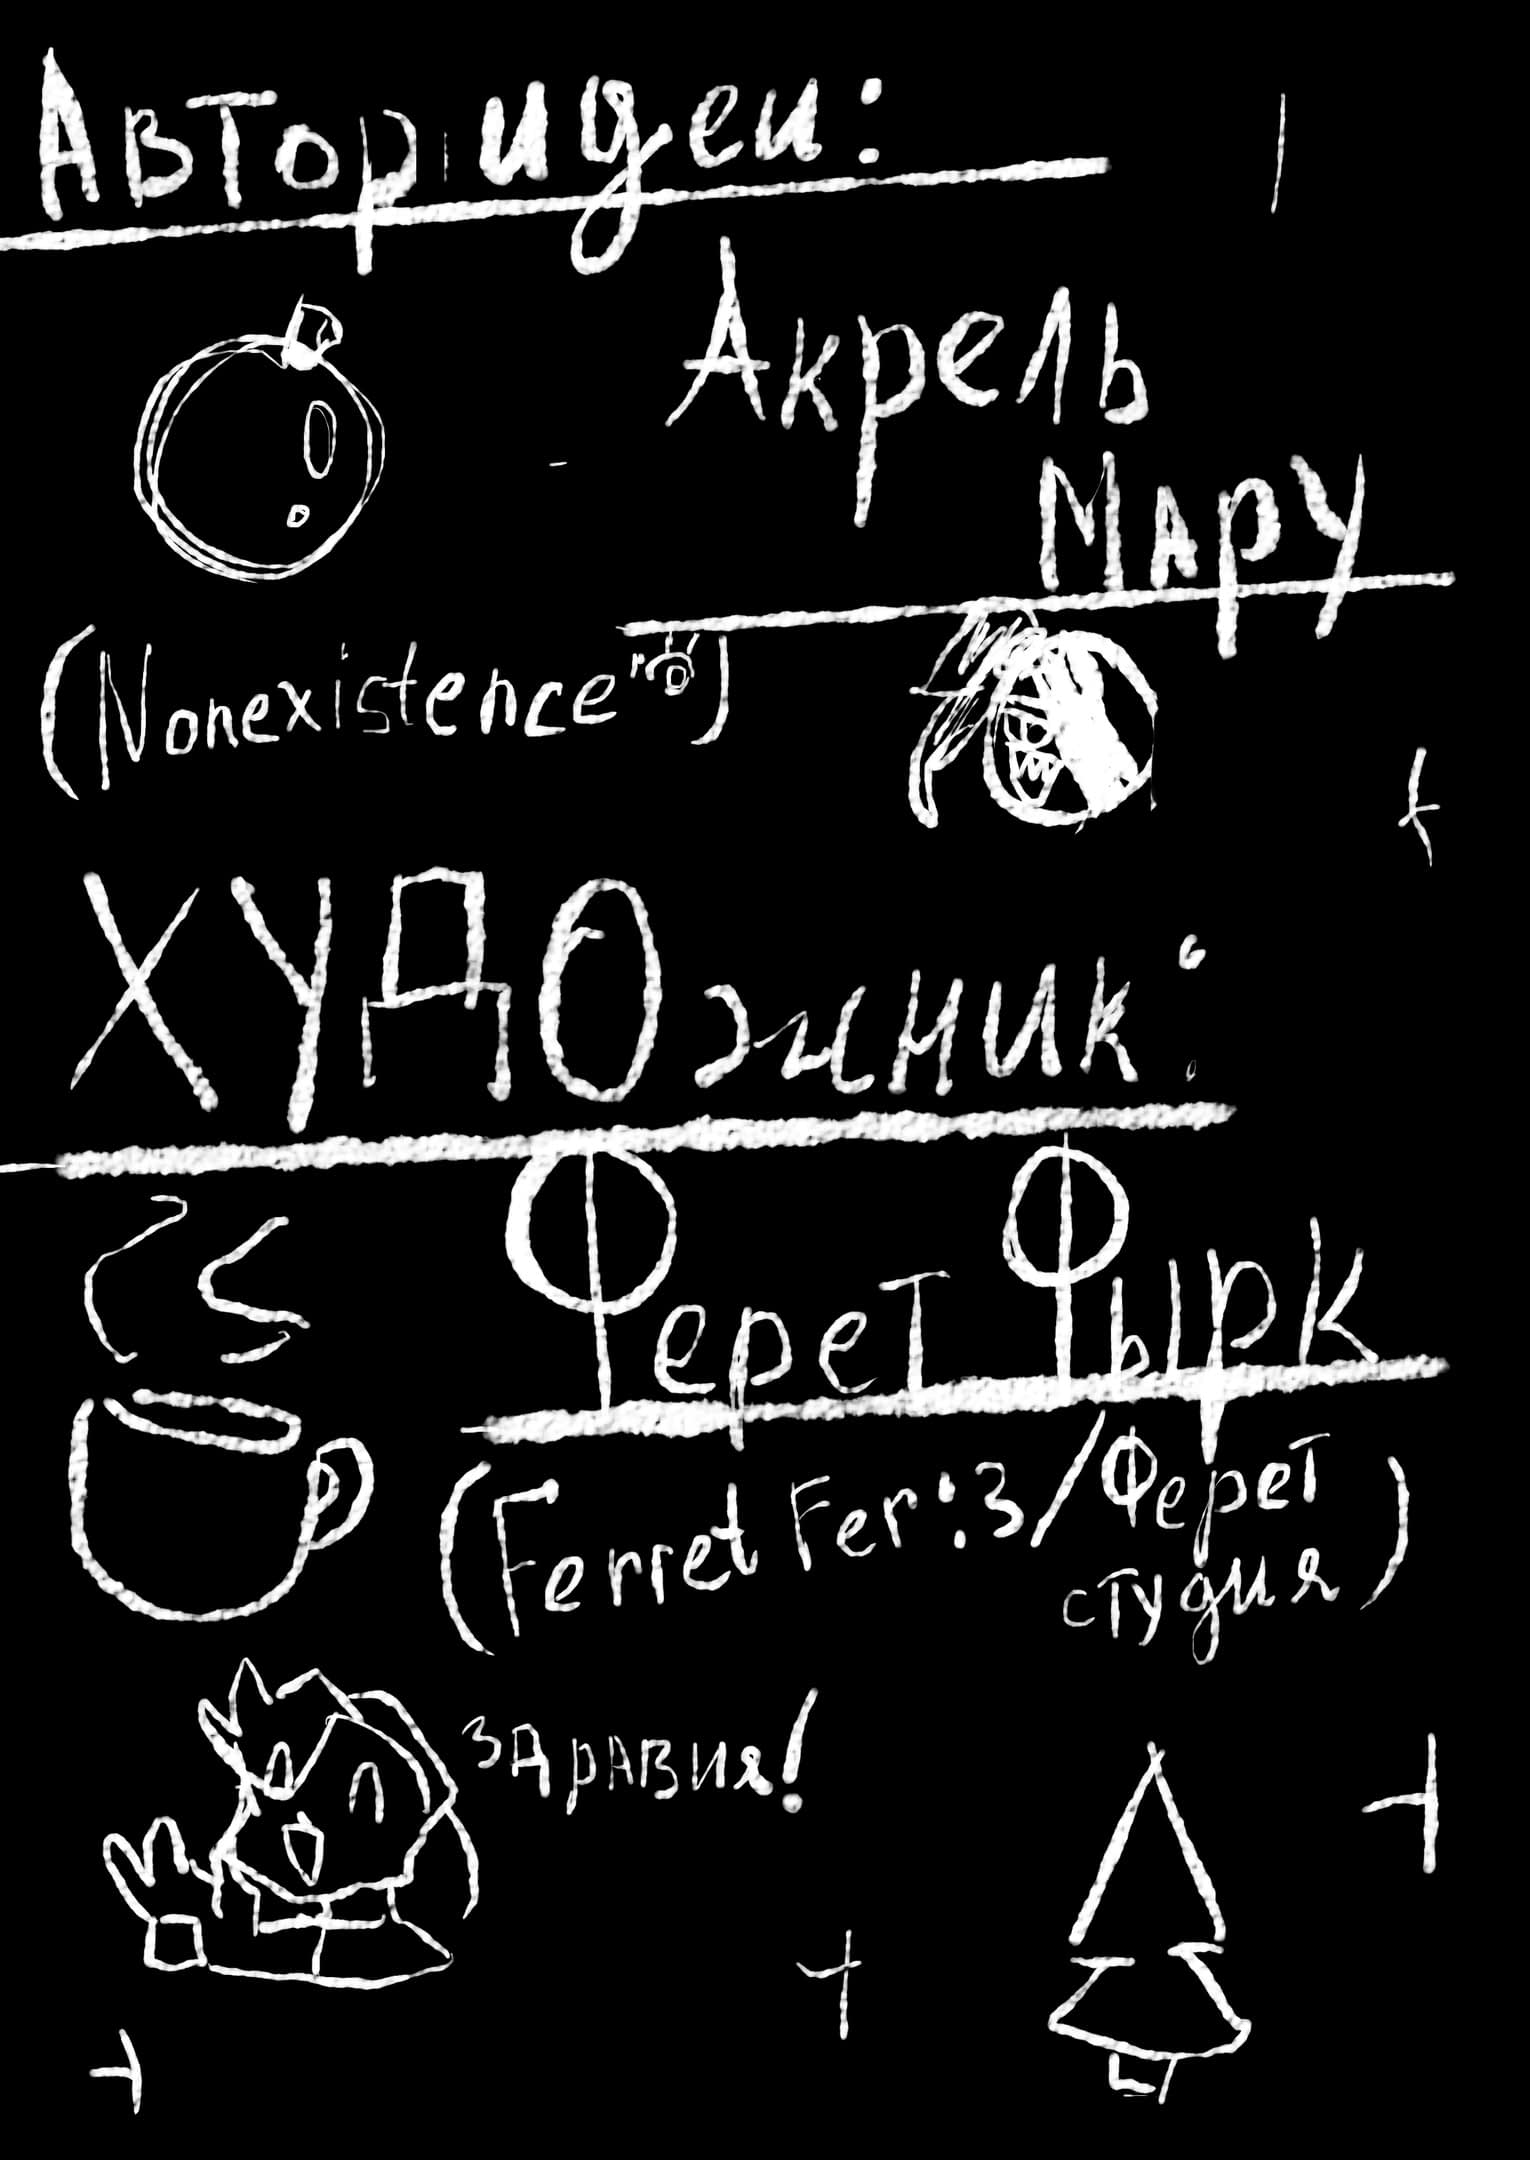 Автор идеи:
Акрель
Мару
(Nonexistence)
ХУДОжник:
Ферет Фырк
(Ferret Fer :3/Ферет
студия)
здравия!